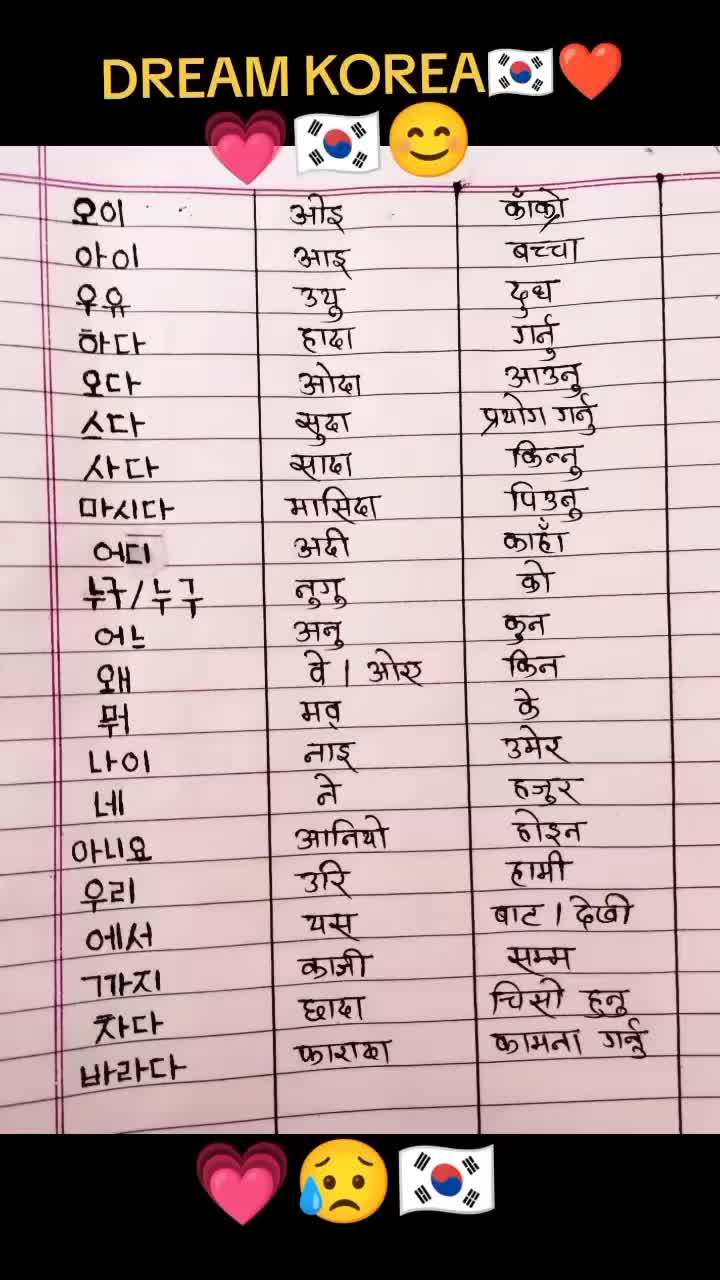 DREAM KOREA🇰🇷❤️
💗🇰🇷😊
오이 ओइ काँक्रो
아이 आइ बच्चा
우유 उयु दुध
하다 हादा गर्नु
오다 ओदा आउनु
스다 सुदा प्रयोग गर्नु
사다 सादा किन्नु
마시다 मासिदा पिउनु
어디 अदी काहाँ
누구/누구 नुगु को
어느 अनु कुन
왜 वे । ओए किन
뭐 मव् के
나이 नाइ उमेर
네 ने हजुर
아니요 आनियो होइन
우리 उरि हामी
에서 यस बाट । देखी
까지 काजी सम्म
차다 छादा चिसो हुनु
바라다 फारादा कामना गर्नु
💗😥🇰🇷